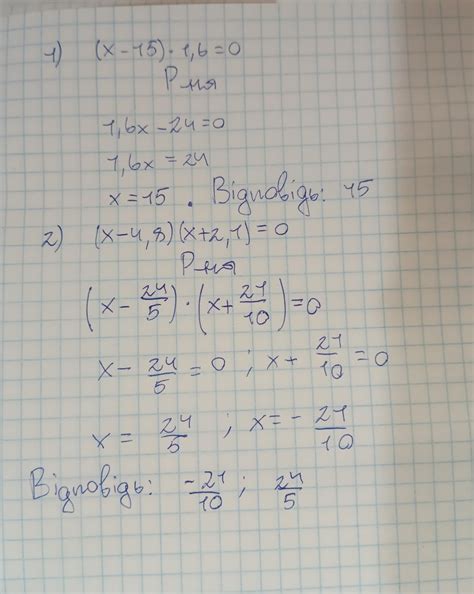 1) (x-15)·1,6=0
Р-ня
1,6x-24=0
1,6x=24
x=15. Відповідь: 15
2) (x-4,8)(x+2,1)=0
Р-ня
(x-24/5)·(x+21/10)=0
x-24/5=0; x+21/10=0
x=24/5; x=-21/10
Відповідь: -21/10; 24/5